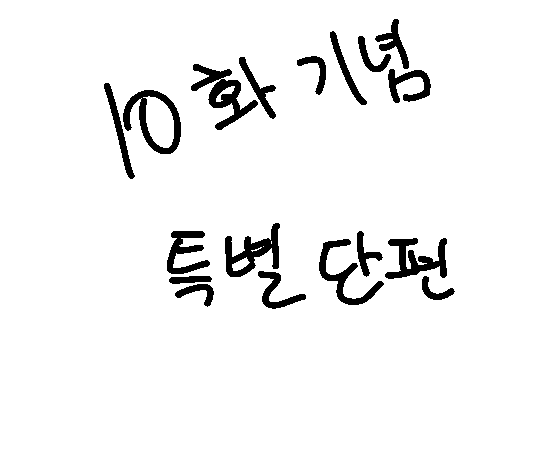 10화 기념
특별 단편